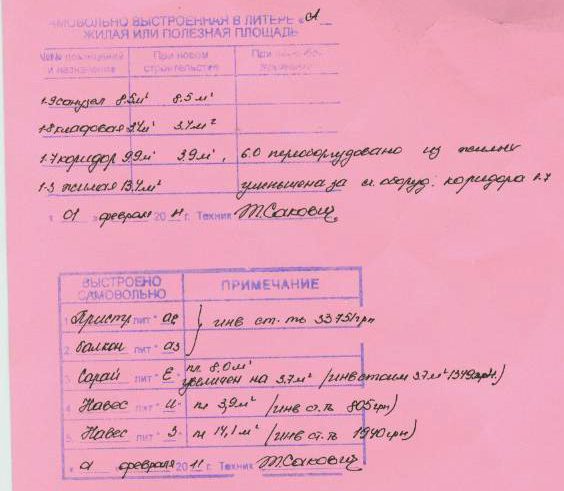 АМОВОЛЬНО ВЫСТРОЕННАЯ В ЛИТЕРЕ «А
ЖИЛАЯ ИЛИ ПОЛЕЗНАЯ ПЛОЩАДЬ
№№ помещений и назначение При новом строительстве При
1-9 санузел 8.5м² 8.5м²
1-8 кладовая 3.4м² 3.4м²
1-7 коридор 9.9м² 3.9м², 6.0 переоборудовано из жилых
1-3 жилая 13.4м² уменьшена за сч. оборуд. коридора 1-7
« 01 » февраля 20 11 г. Техник Т.Сакович
ВЫСТРОЕНО САМОВОЛЬНО ПРИМЕЧАНИЕ
1. Пристр лит " а2 инв ст. ть 33751грн
2. балкон лит " а3
3. Сарай лит " Е пл 8,0м²
увеличен на 3.7м² /инв стоим 3.7м² 1349грн.)
4. Навес лит " И- пл 3,9м² /инв ст. ть 805грн)
5. Навес лит " З- пл 14,1м² /инв ст. ть 1940грн)
« 01 февраля 20 11 г. Техник Т.Сакович